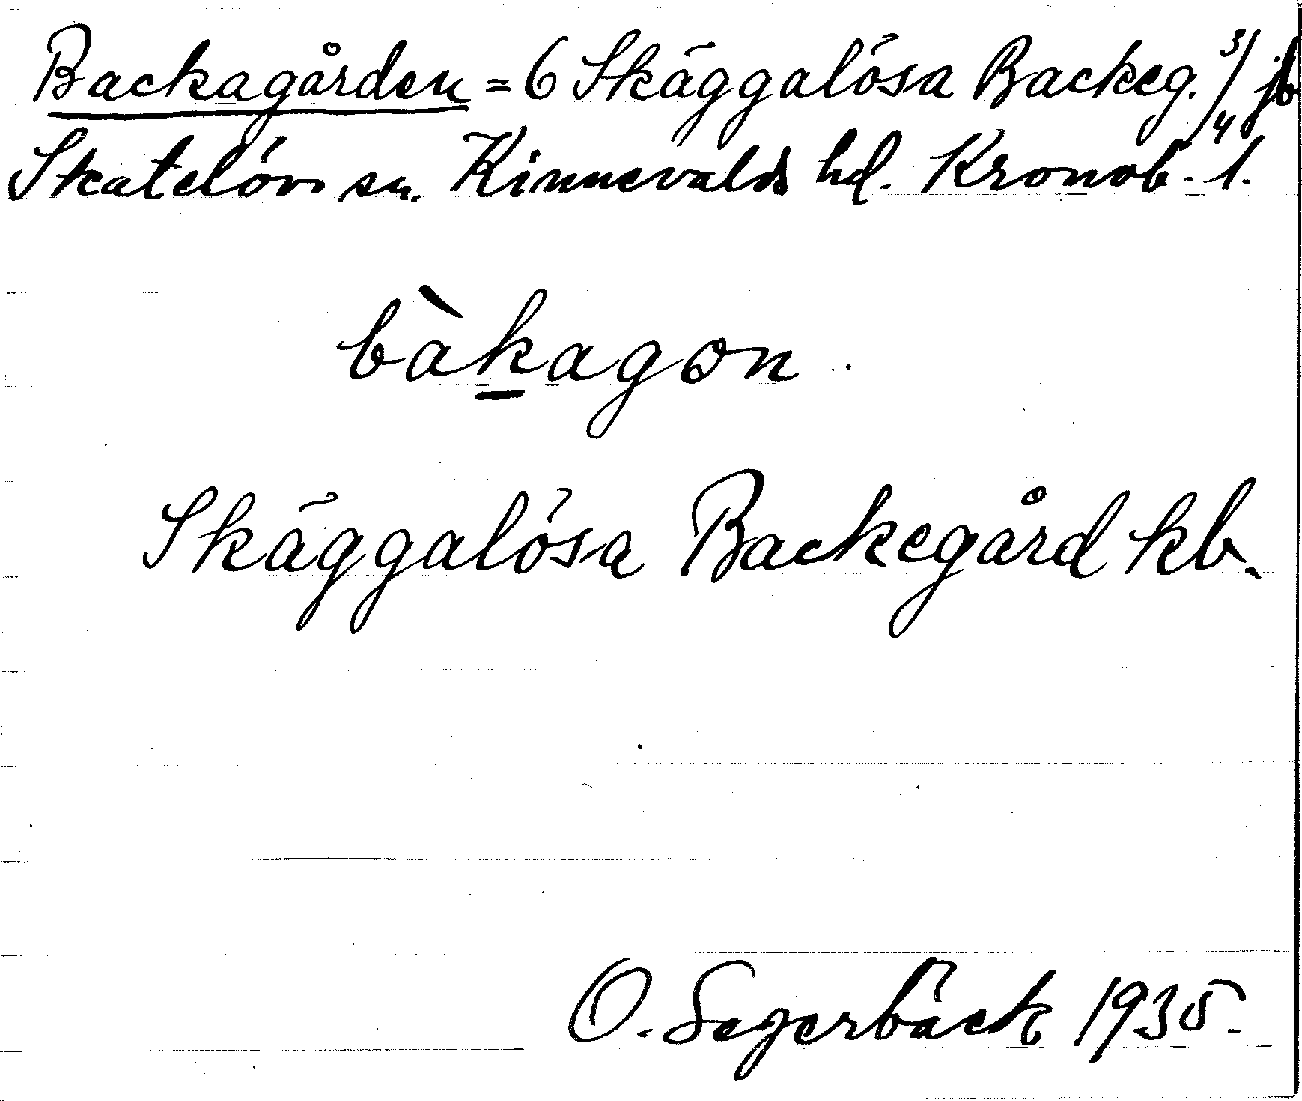 Backagården = 6 Skäggalösa Backeg. 3/4 jb
Skatelöv sn. Kinnevalds hd. Kronob. l.
bàkagon
Skäggalösa Backegård kb.
O. Segerbäck 1935.